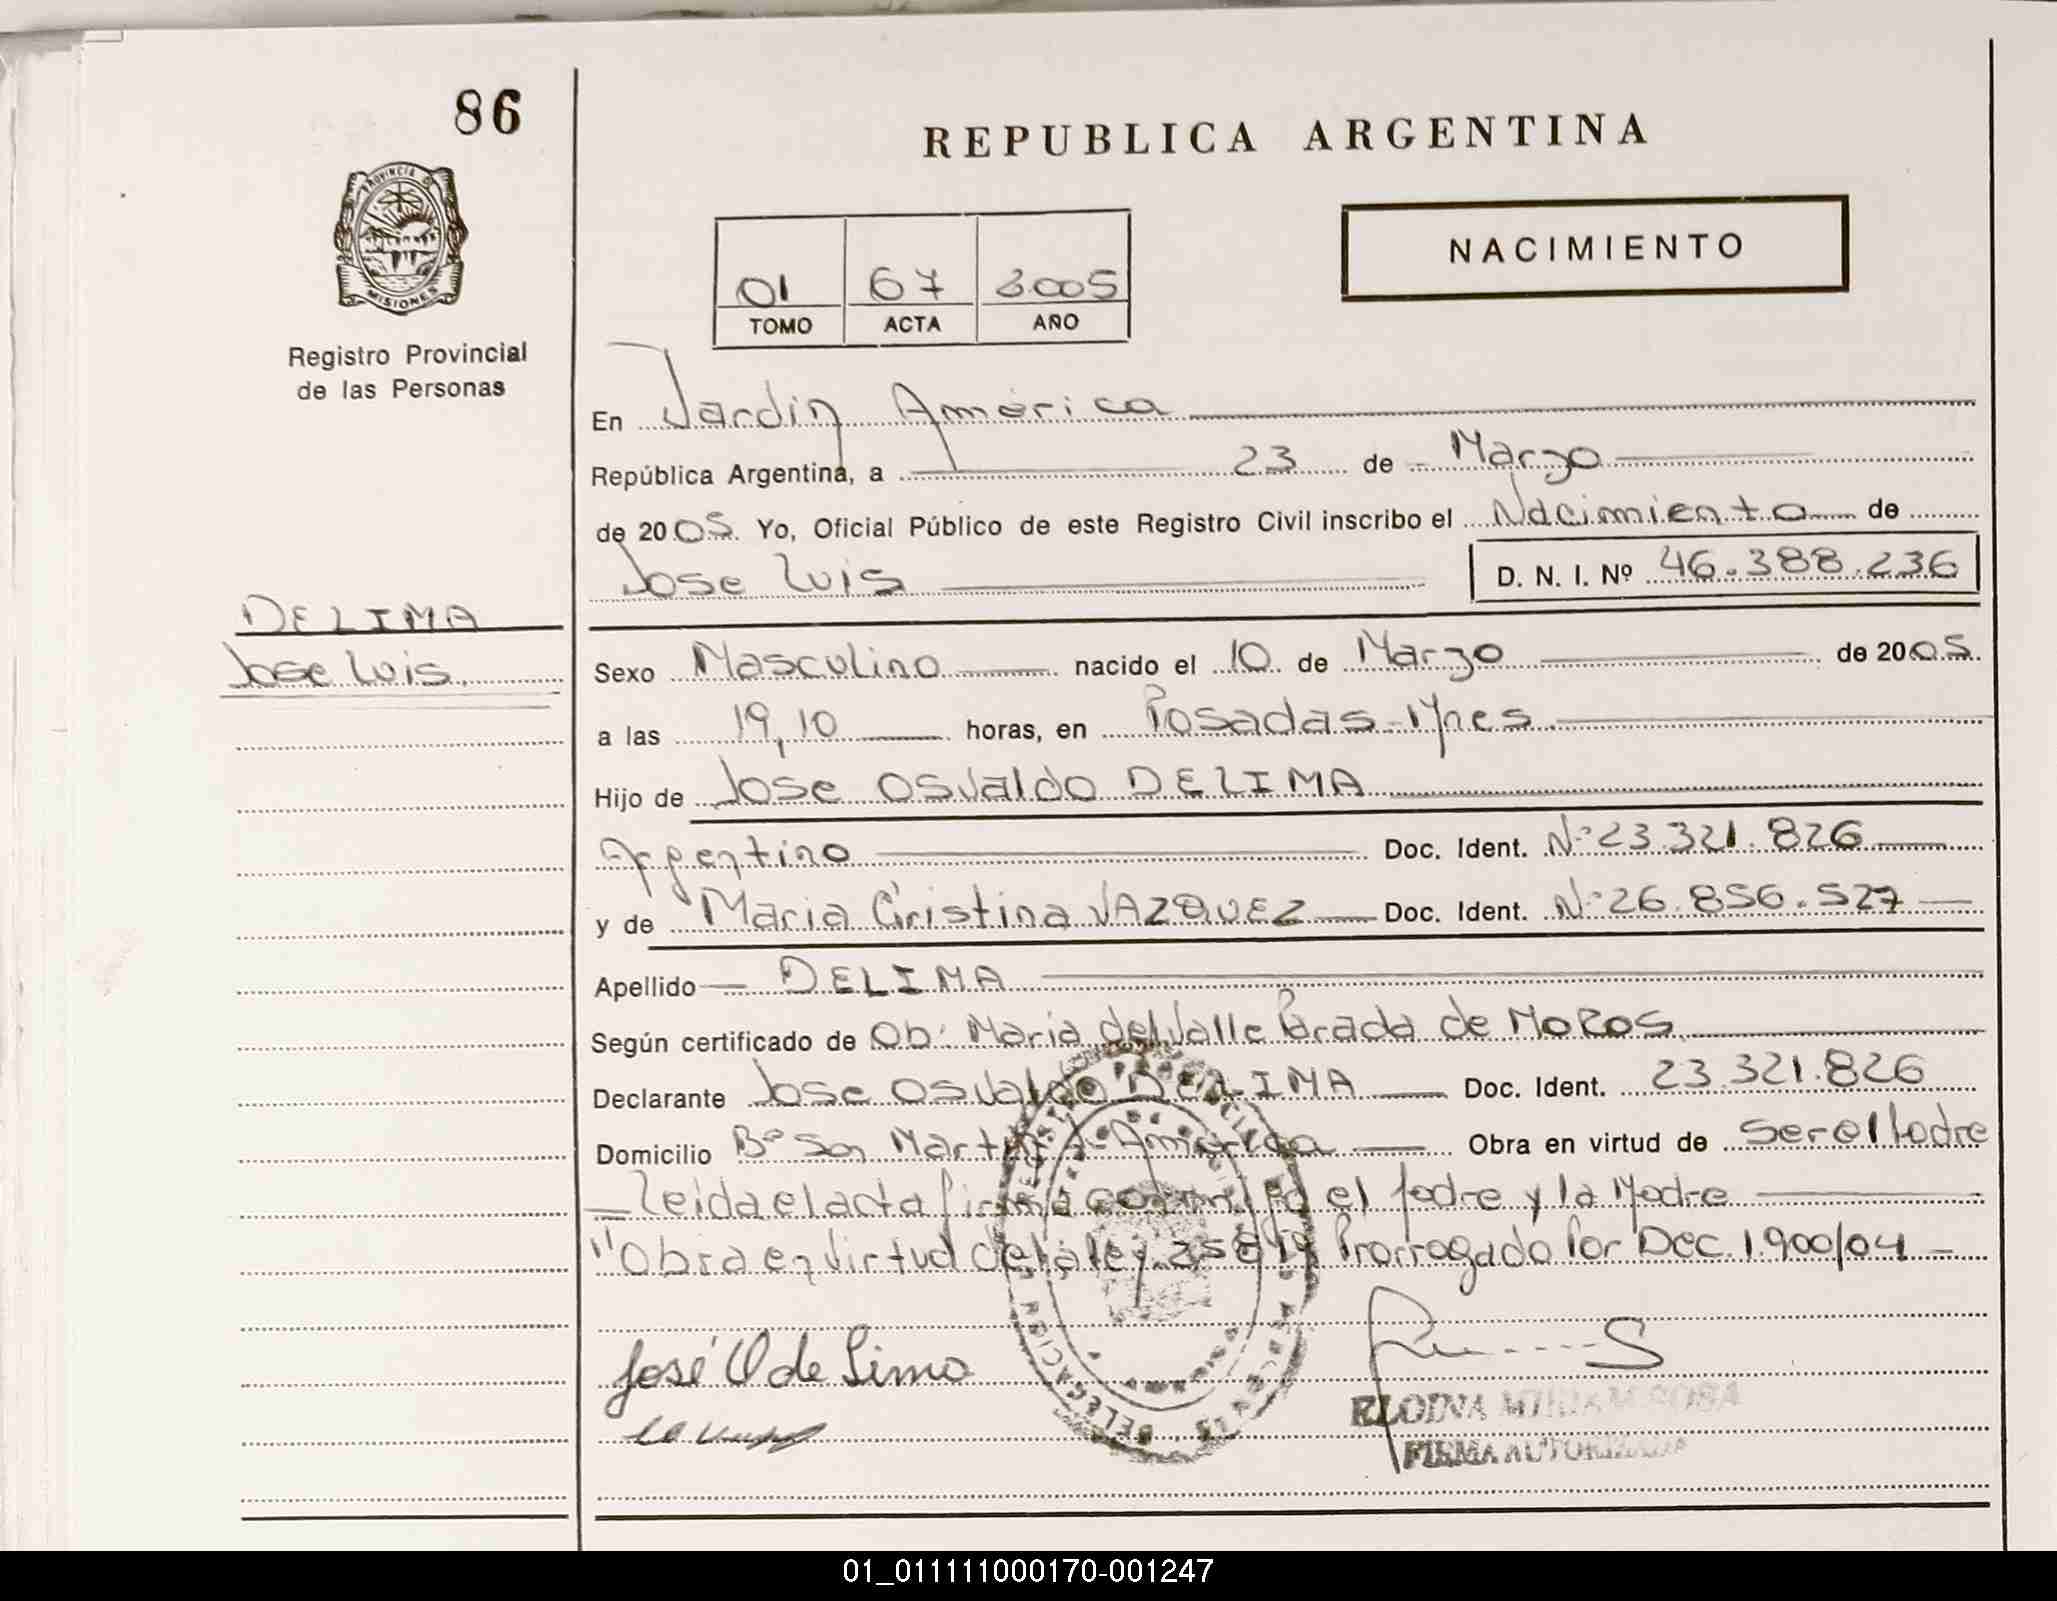 86
REPUBLICA ARGENTINA
PROVINCIA D
MISIONES
Registro Provincial
de las Personas
NACIMIENTO
01 67 2005
TOMO ACTA AÑO
En Jardin América
República Argentina, a 23 de Marzo
de 2005. Yo, Oficial Público de este Registro Civil inscribo el Nacimiento de
Jose Luis D. N. I. Nº 46.388.236
DELIMA
Jose Luis
Sexo Masculino nacido el 10 de Marzo de 2005.
a las 19,10 horas, en Posadas-Mnes.
Hijo de Jose Osvaldo DELIMA
Argentino Doc. Ident. Nº 23.321.826
y de Maria Cristina VAZQUEZ Doc. Ident. Nº 26.856.527
Apellido DELIMA
Según certificado de Ob. Maria del Valle Parada de Moros
Declarante Jose Osvaldo DELIMA Doc. Ident. 23.321.826
Domicilio Bº San Martin J. América Obra en virtud de ser el Padre
Leida el acta firma conmigo el Padre y la Madre
"Obra en virtud de la ley 25819 Prorrogado Por Dec. 1.900/04
José O de Lima
ELODINA MIRIAM SOSA
FIRMA AUTORIZADA
01_011111000170-001247